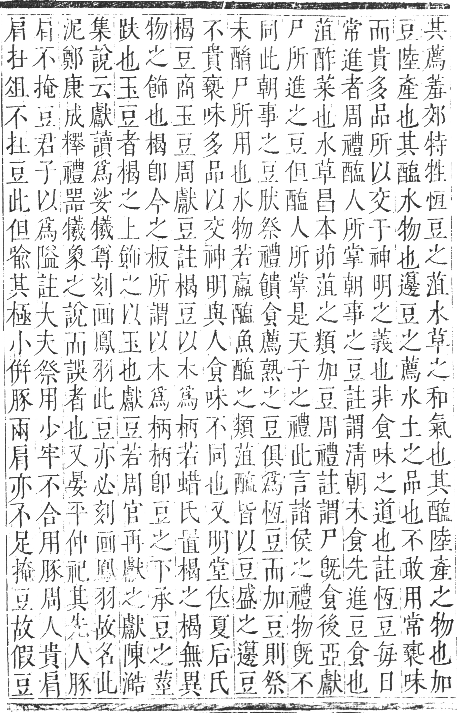 其薦羞郊特牲恆豆之菹水草之和氣也其醢陸產之物也加
豆陸產也其醢水物也籩豆之薦水土之品也不敢用常褻味
而貴多品所以交于神明之義也非食味之道也註恆豆每日
常進者周禮醢人所掌朝事之豆註謂清朝未食先進豆食也
菹酢菜也水草昌本茆菹之類加豆周禮註謂尸旣食後亞獻
尸所進之豆但醢人所掌是天子之禮此言諸侯之禮物旣不
同此朝事之豆朕祭禮饋食薦熟之豆俱爲恆豆而加豆則祭
未酳尸所用也水物若蠃醢魚醢之類菹醢皆以豆盛之籩豆
不貴褻味多品以交神明與人食味不同也又明堂位夏后氏
楬豆商玉豆周獻豆註楬豆以木爲柄若蜡氏置楬之楬無異
物之飾也楬卽今之板所謂以木爲柄柄卽豆之下承豆之莖
趺也玉豆者楬之上飾之以玉也獻豆若周官再獻之獻陳澔
集說云獻讀爲娑犧尊刻画鳳羽此豆亦必刻画鳳羽故名此
泥鄭康成釋禮器犧象之說而誤者也又晏平仲祀其先人豚
肩不掩豆君子以爲隘註大夫祭用少牢不合用豚周人貴肩
肩在俎不在豆此但喻其極小併豚兩肩亦不足掩豆故假豆